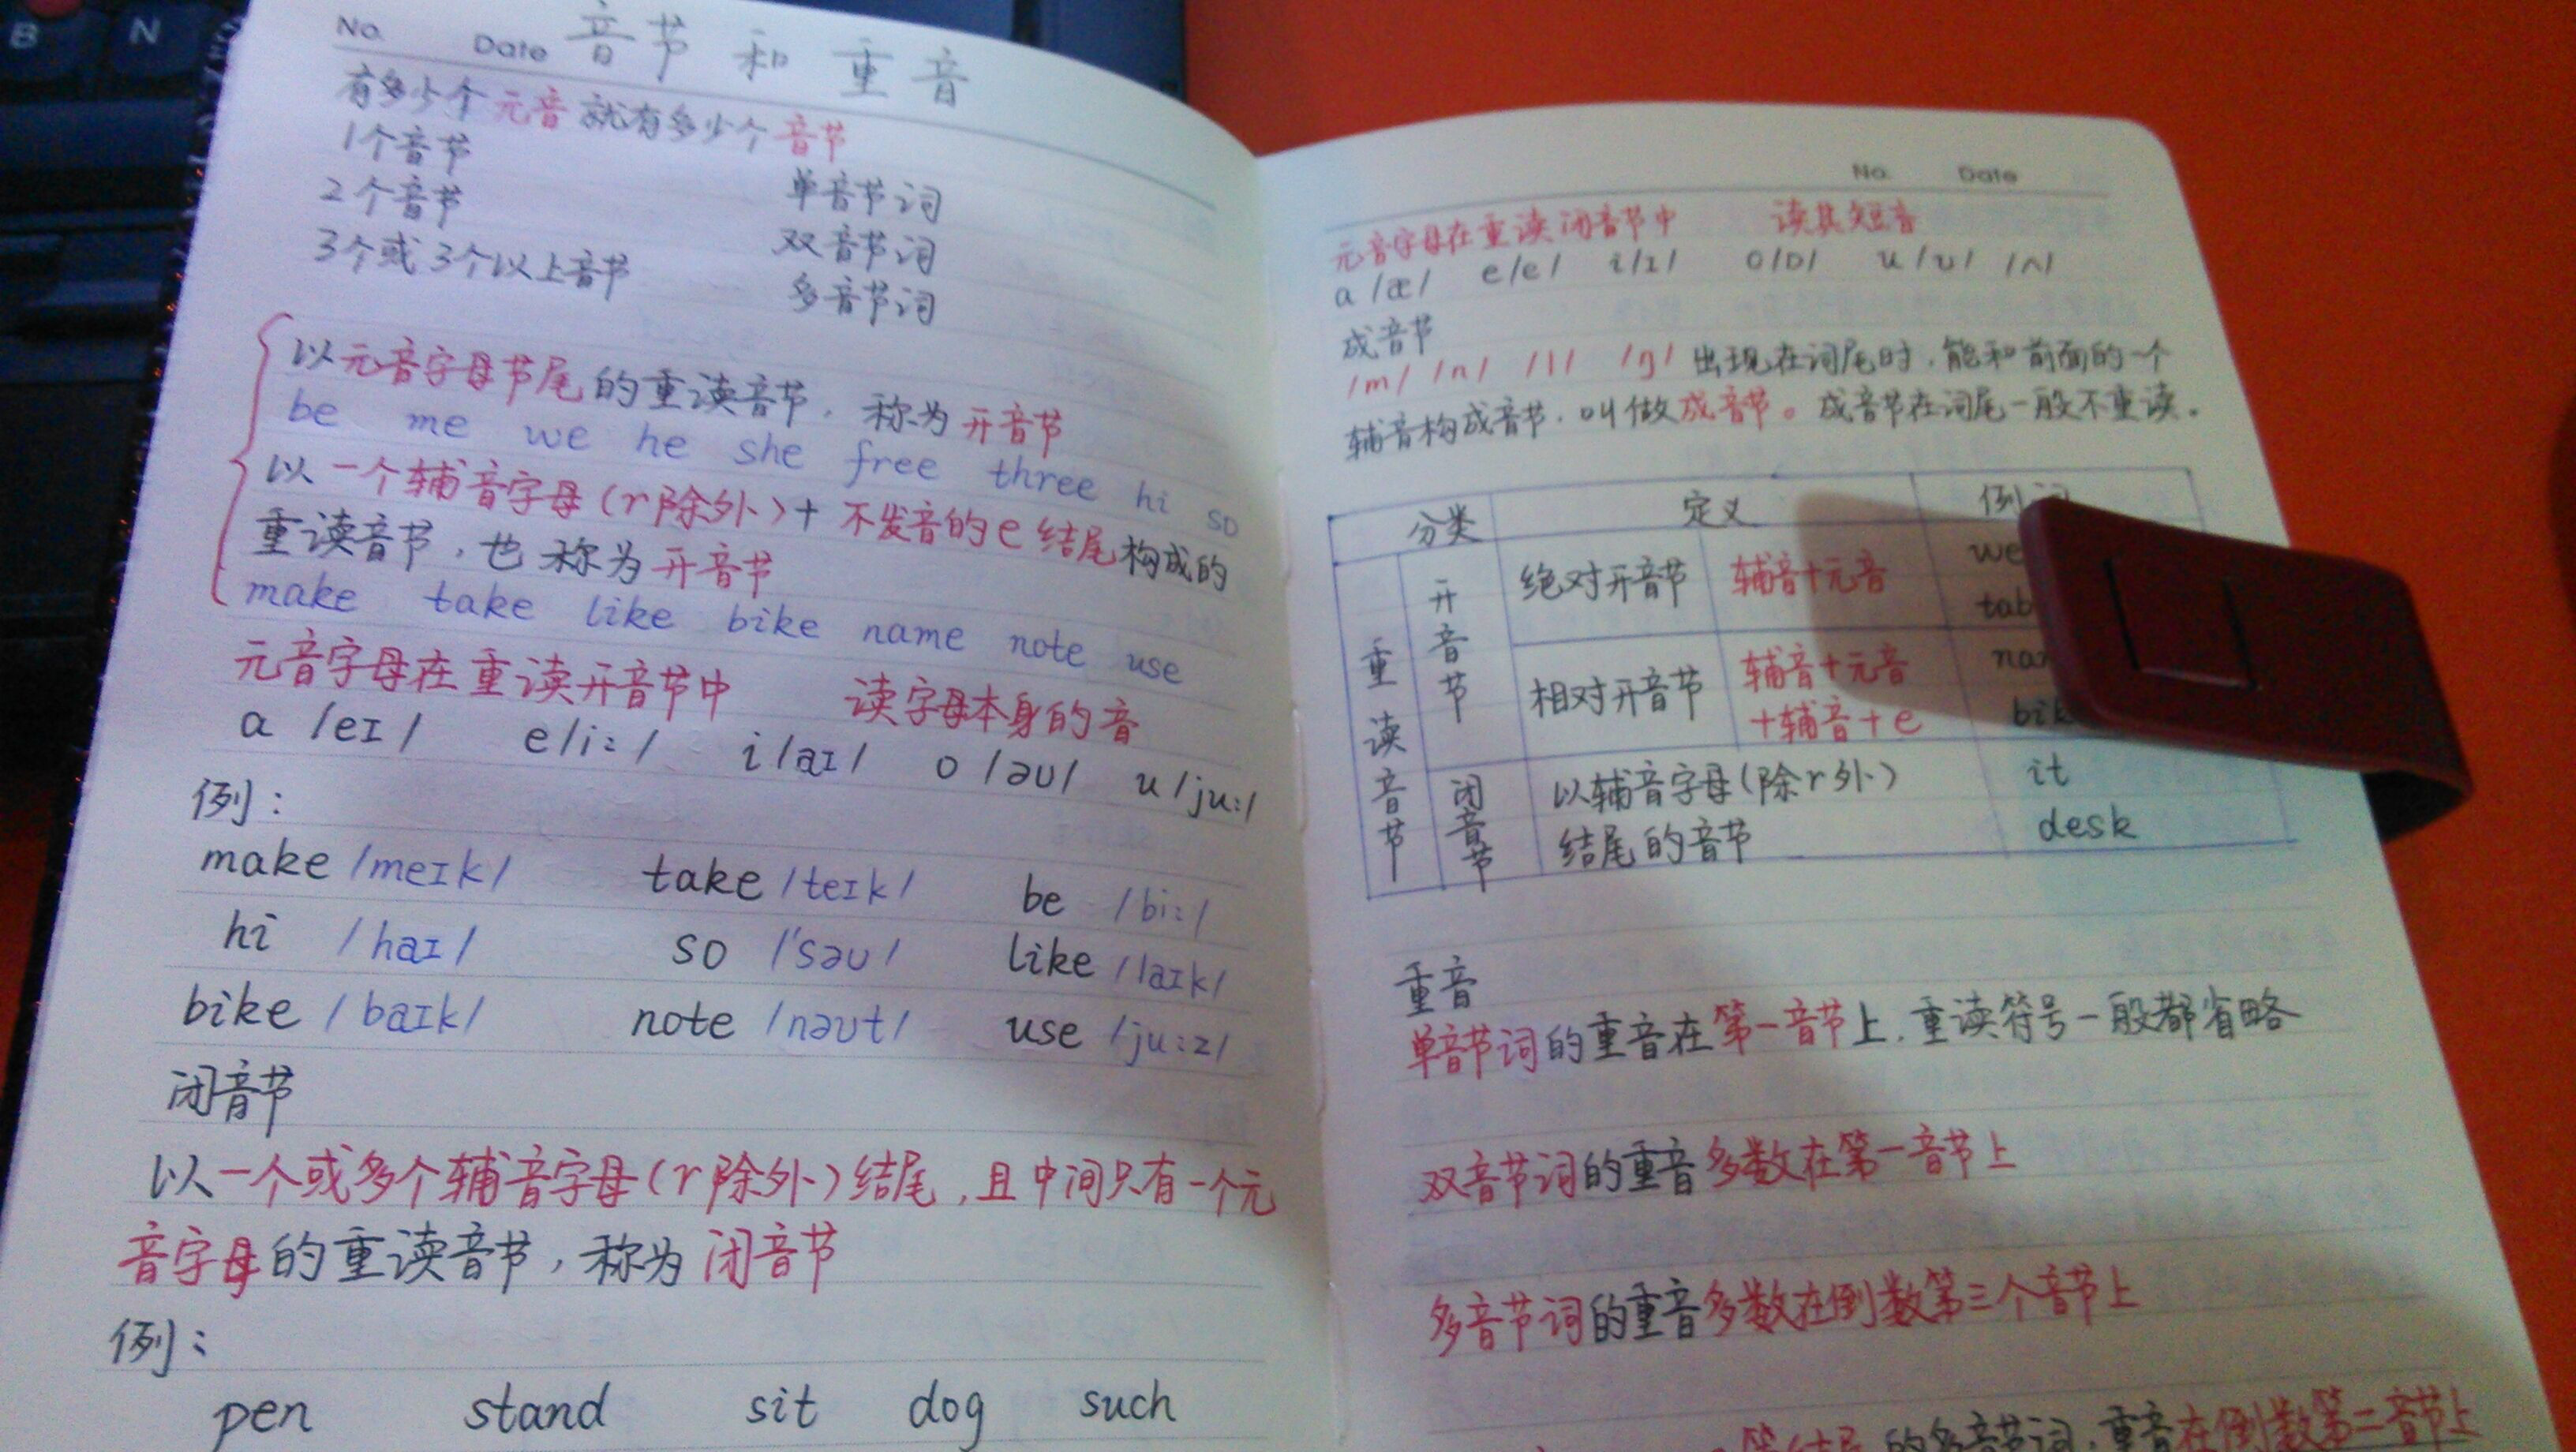 B N
No. Date 音节 和 重音
有多少个元音就有多少个音节
1个音节 单音节词
2个音节 双音节词
3个或3个以上音节 多音节词
以元音字母节尾的重读音节，称为开音节
be me we he she free three hi so
以一个辅音字母(r除外)+不发音的e结尾构成的
重读音节，也称为开音节
make take like bike name note use
元音字母在重读开音节中 读字母本身的音
a /eɪ/ e/i:/ i/aɪ/ o/əʊ/ u/ju:/
例：
make /meɪk/ take /teɪk/ be /bi:/
hi /haɪ/ so /'səʊ/ like /laɪk/
bike /baɪk/ note /nəʊt/ use /ju:z/
闭音节
以一个或多个辅音字母(r除外)结尾，且中间只有一个元
音字母的重读音节，称为闭音节
例：
pen stand sit dog such
No. Date
元音字母在重读闭音节中 读其短音
a /æ/ e/e/ i/ɪ/ o/ɒ/ u/ʊ/ /ʌ/
成音节
/m/ /n/ /l/ /ŋ/ 出现在词尾时，能和前面的一个
辅音构成音节，叫做成音节。成音节在词尾一般不重读。
分类 定义 例词
重读音节 开音节 绝对开音节 辅音+元音 we
相对开音节 辅音+元音
+辅音+e
闭音节 以辅音字母(除r外) it
结尾的音节 desk
重音
单音节词的重音在第一音节上，重读符号一般都省略
双音节词的重音多数在第一音节上
多音节词的重音多数在倒数第三个音节上
等结尾的多音节词，重音在倒数第二音节上